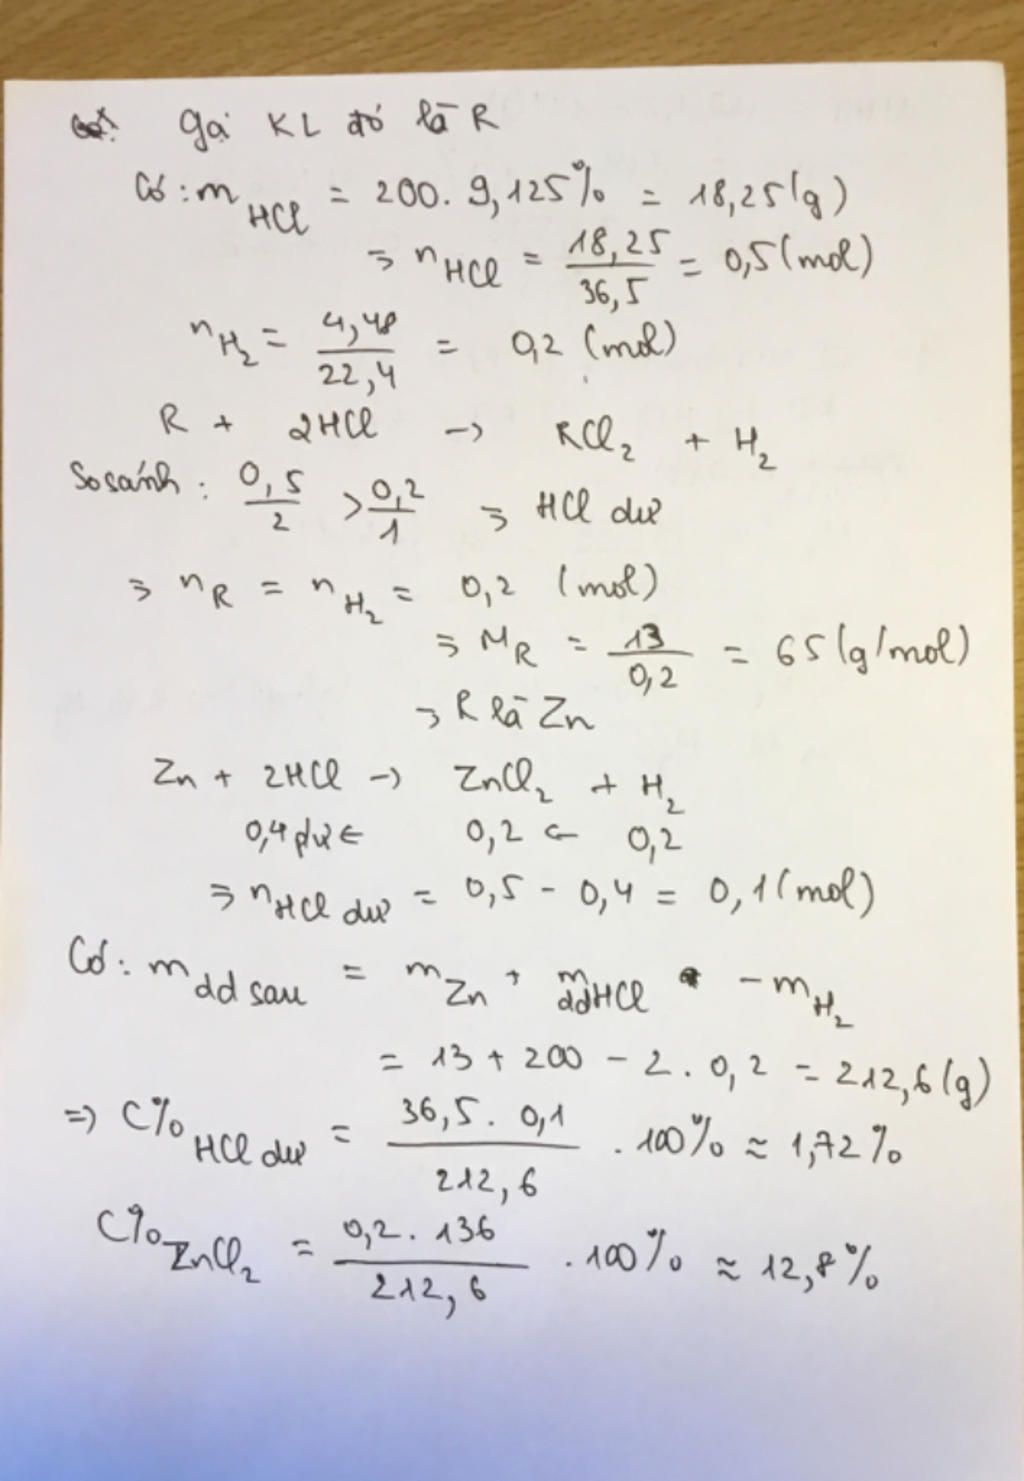 Gọi KL đó là R
Có: m HCl = 200. 9,125% = 18,25(g)
⇒ n HCl = 18,25/36,5 = 0,5(mol)
n H₂ = 4,48/22,4 = 0,2 (mol)
R + 2HCl → RCl₂ + H₂
So sánh: 0,5/2 > 0,2/1 ⇒ HCl dư
⇒ n R = n H₂ = 0,2 (mol)
⇒ M R = 13/0,2 = 65(g/mol)
→ R là Zn
Zn + 2HCl → ZnCl₂ + H₂
0,4 pư ← 0,2 ← 0,2
⇒ n HCl dư = 0,5 - 0,4 = 0,1(mol)
Có: m dd sau = m Zn + m ddHCl - m H₂
= 13 + 200 - 2. 0,2 = 212,6(g)
=> C% HCl dư = 36,5. 0,1/212,6 . 100% ≈ 1,72%
C% ZnCl₂ = 0,2. 136/212,6 . 100% ≈ 12,8%